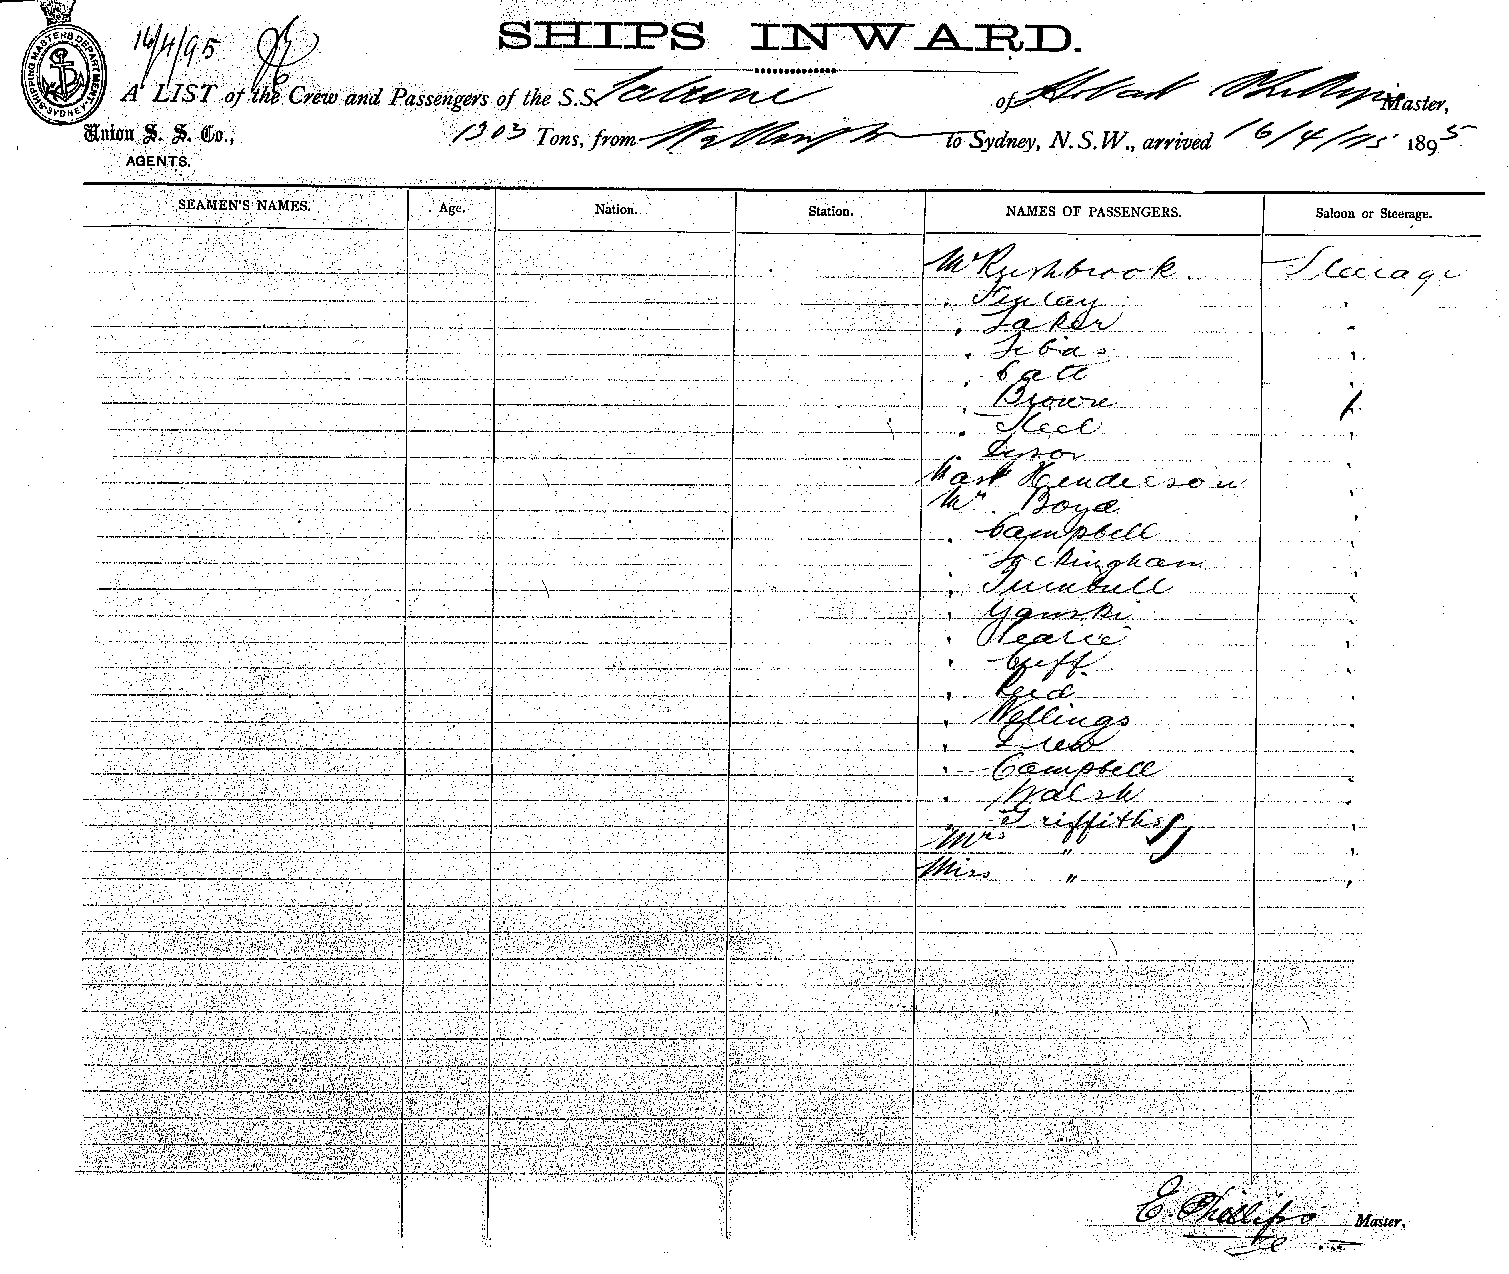 SHIPS INWARD.
16/4/95
SHIPPING MASTERS DEPARTMENT SYDNEY
A LIST of the Crew and Passengers of the S.S. of Hobart Phillips Master,
Union S. S. Co., 1303 Tons, from to Sydney, N.S.W., arrived 16/4/95 1895
AGENTS.
SEAMEN'S NAMES. Age. Nation. Station. NAMES OF PASSENGERS. Saloon or Steerage.
Mr Rushbrook Steerage
" Finlay "
" Laker "
" "
" Catt "
" Browne "
" Steel "
Mast Henderson "
Mr. Boyd "
" Campbell "
"
" Turnbull "
" "
" "
" Cuff "
" Reid "
" Wellings "
" Frew "
" Campbell "
" Walsh "
" Griffiths "
Mrs " "
Miss " "
E. Phillips Master.